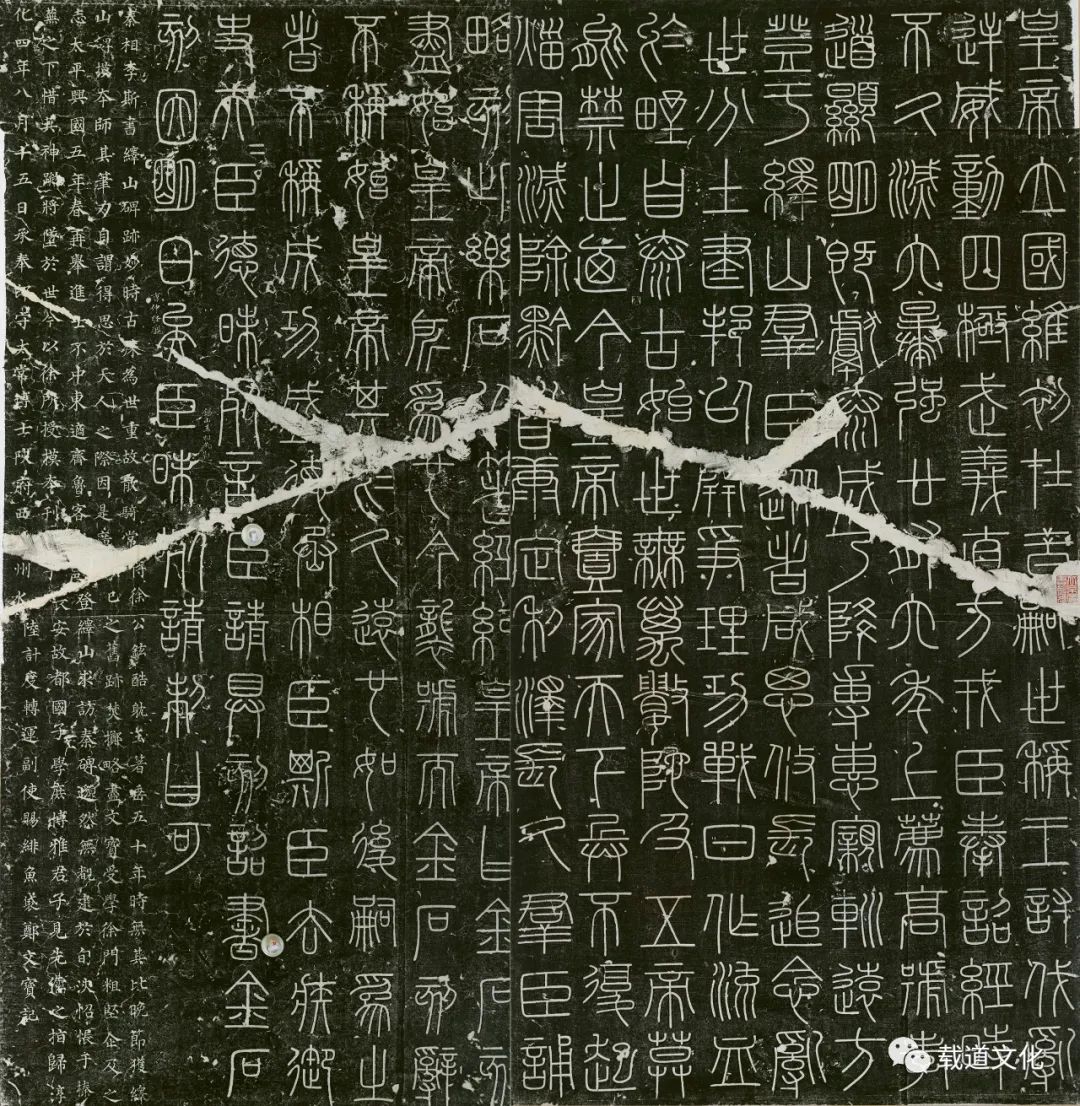 皇帝立國維初在昔嗣世稱王討伐亂
逆威動四極武義直方戎臣奉詔經時
不久滅六暴強廿有六年上薦高號孝
道顯明既獻泰成乃降專惠寴軔遠方
登于繹山羣臣從者咸思攸長追念亂
世分土建邦以開爭理功戰日作流血
於野自泰古始世無萬數阤及五帝莫
能禁止廼今皇帝壹家天下兵不復起
烖害滅除黔首康定利澤長久羣臣誦
略刻此樂石以著經紀皇帝曰金石刻
盡始皇帝所為也今襲號而金石刻辭
不稱始皇帝其於久遠也如後嗣為之
者不稱成功盛德丞相臣斯臣去疾御
史夫=臣德昧死言臣請具刻詔書金石
刻因明白矣臣昧死請制曰可
秦相李斯書繹山碑跡妙時古殊為世重故散騎常侍徐公鉉酷躭玉箸垂五十年時無其比晚節獲繹
山碑摸本師其筆力自謂得思於天人之際因是廣己之舊跡焚擲略盡文寶受學徐門粗堅企及之
志太平興國五年春再舉進士不中東適齊魯客邑登繹山求訪秦碑邈然無覩逮於旬浹怊悵于榛
蕪之下惜其神蹤將墜於世今以徐所授摸本刊于長安故都國子學庶博雅君子見先儒之指歸淳
化四年八月十五日承奉郎守太常博士陝府西州水陸計度轉運副使賜緋魚袋鄭文寶記
载道文化